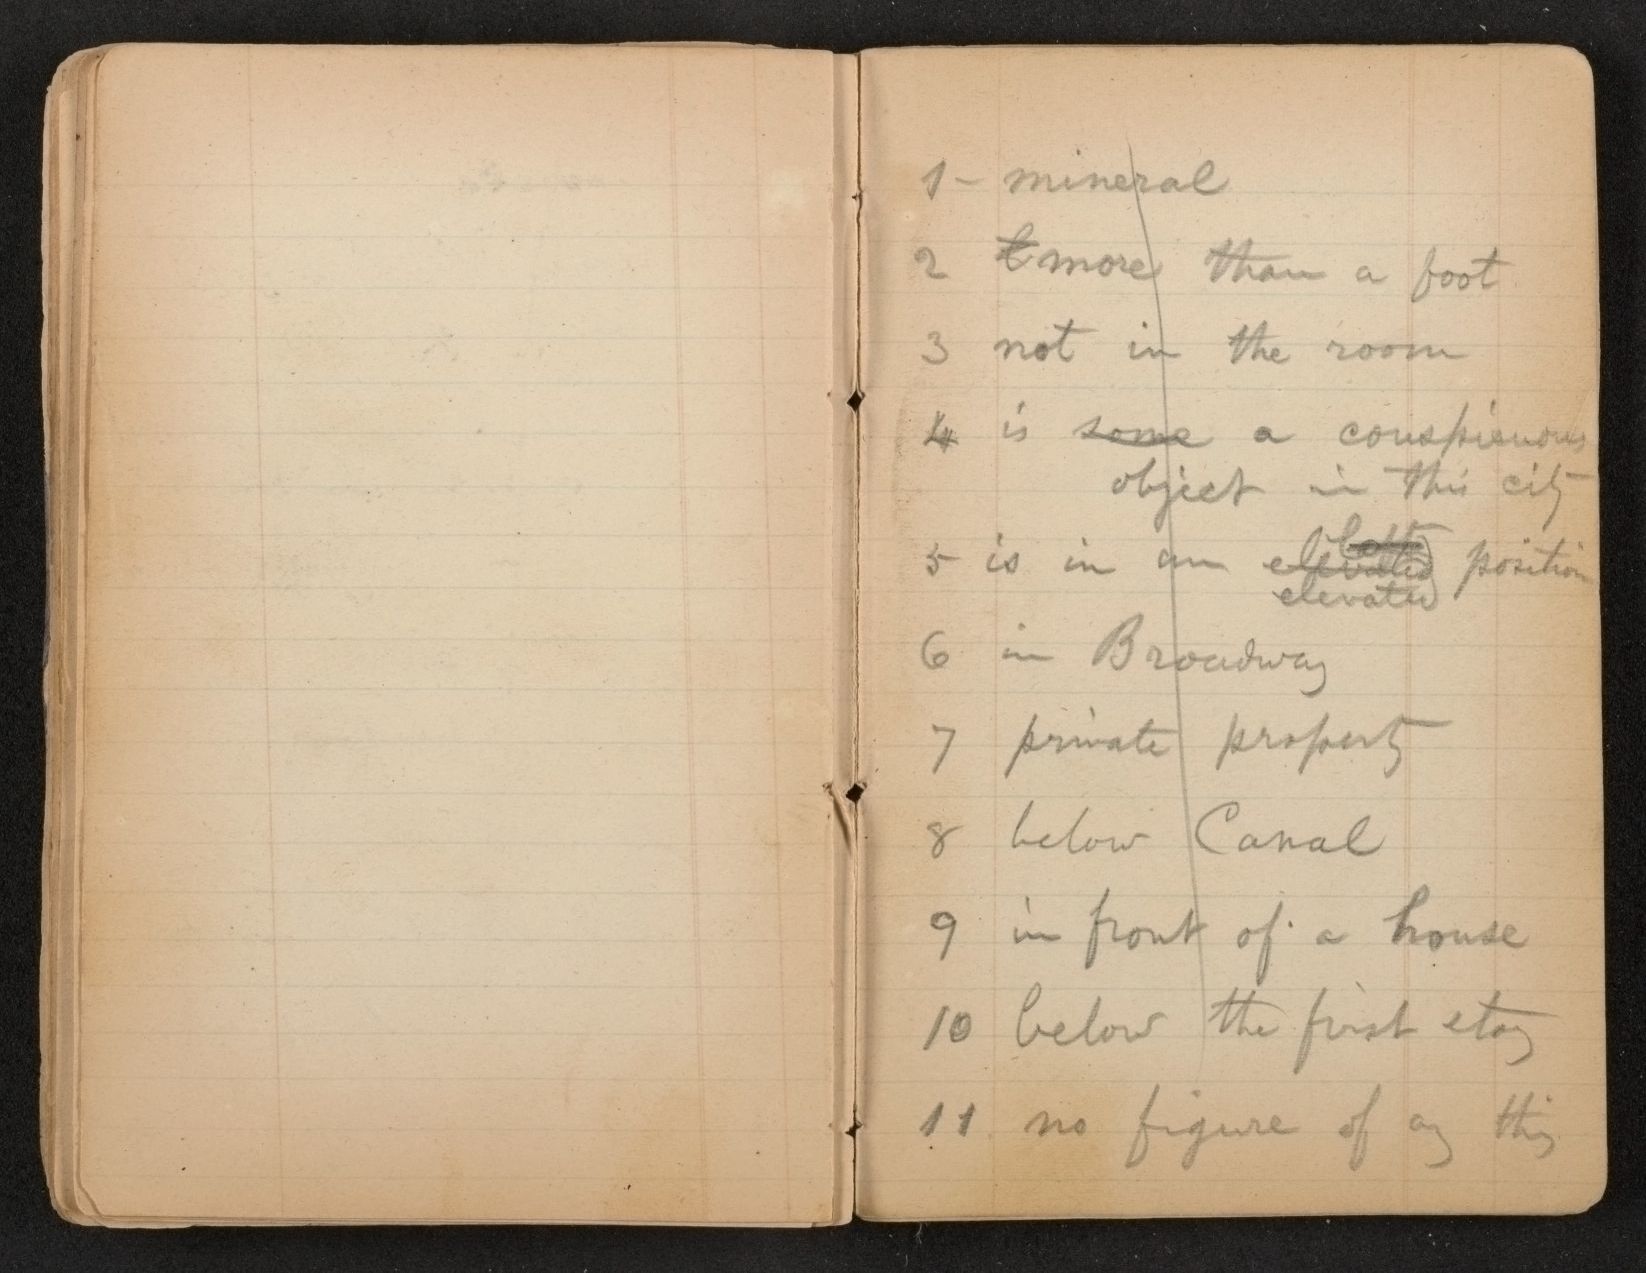 1 - mineral
2 more than a foot
3 not in the room
4 is some a conspicuous
object in this city
5 is in an elevated position
elevated
6 in Broadway
7 private property
8 below Canal
9 in front of a house
10 below the first story
11 no figure of any thing